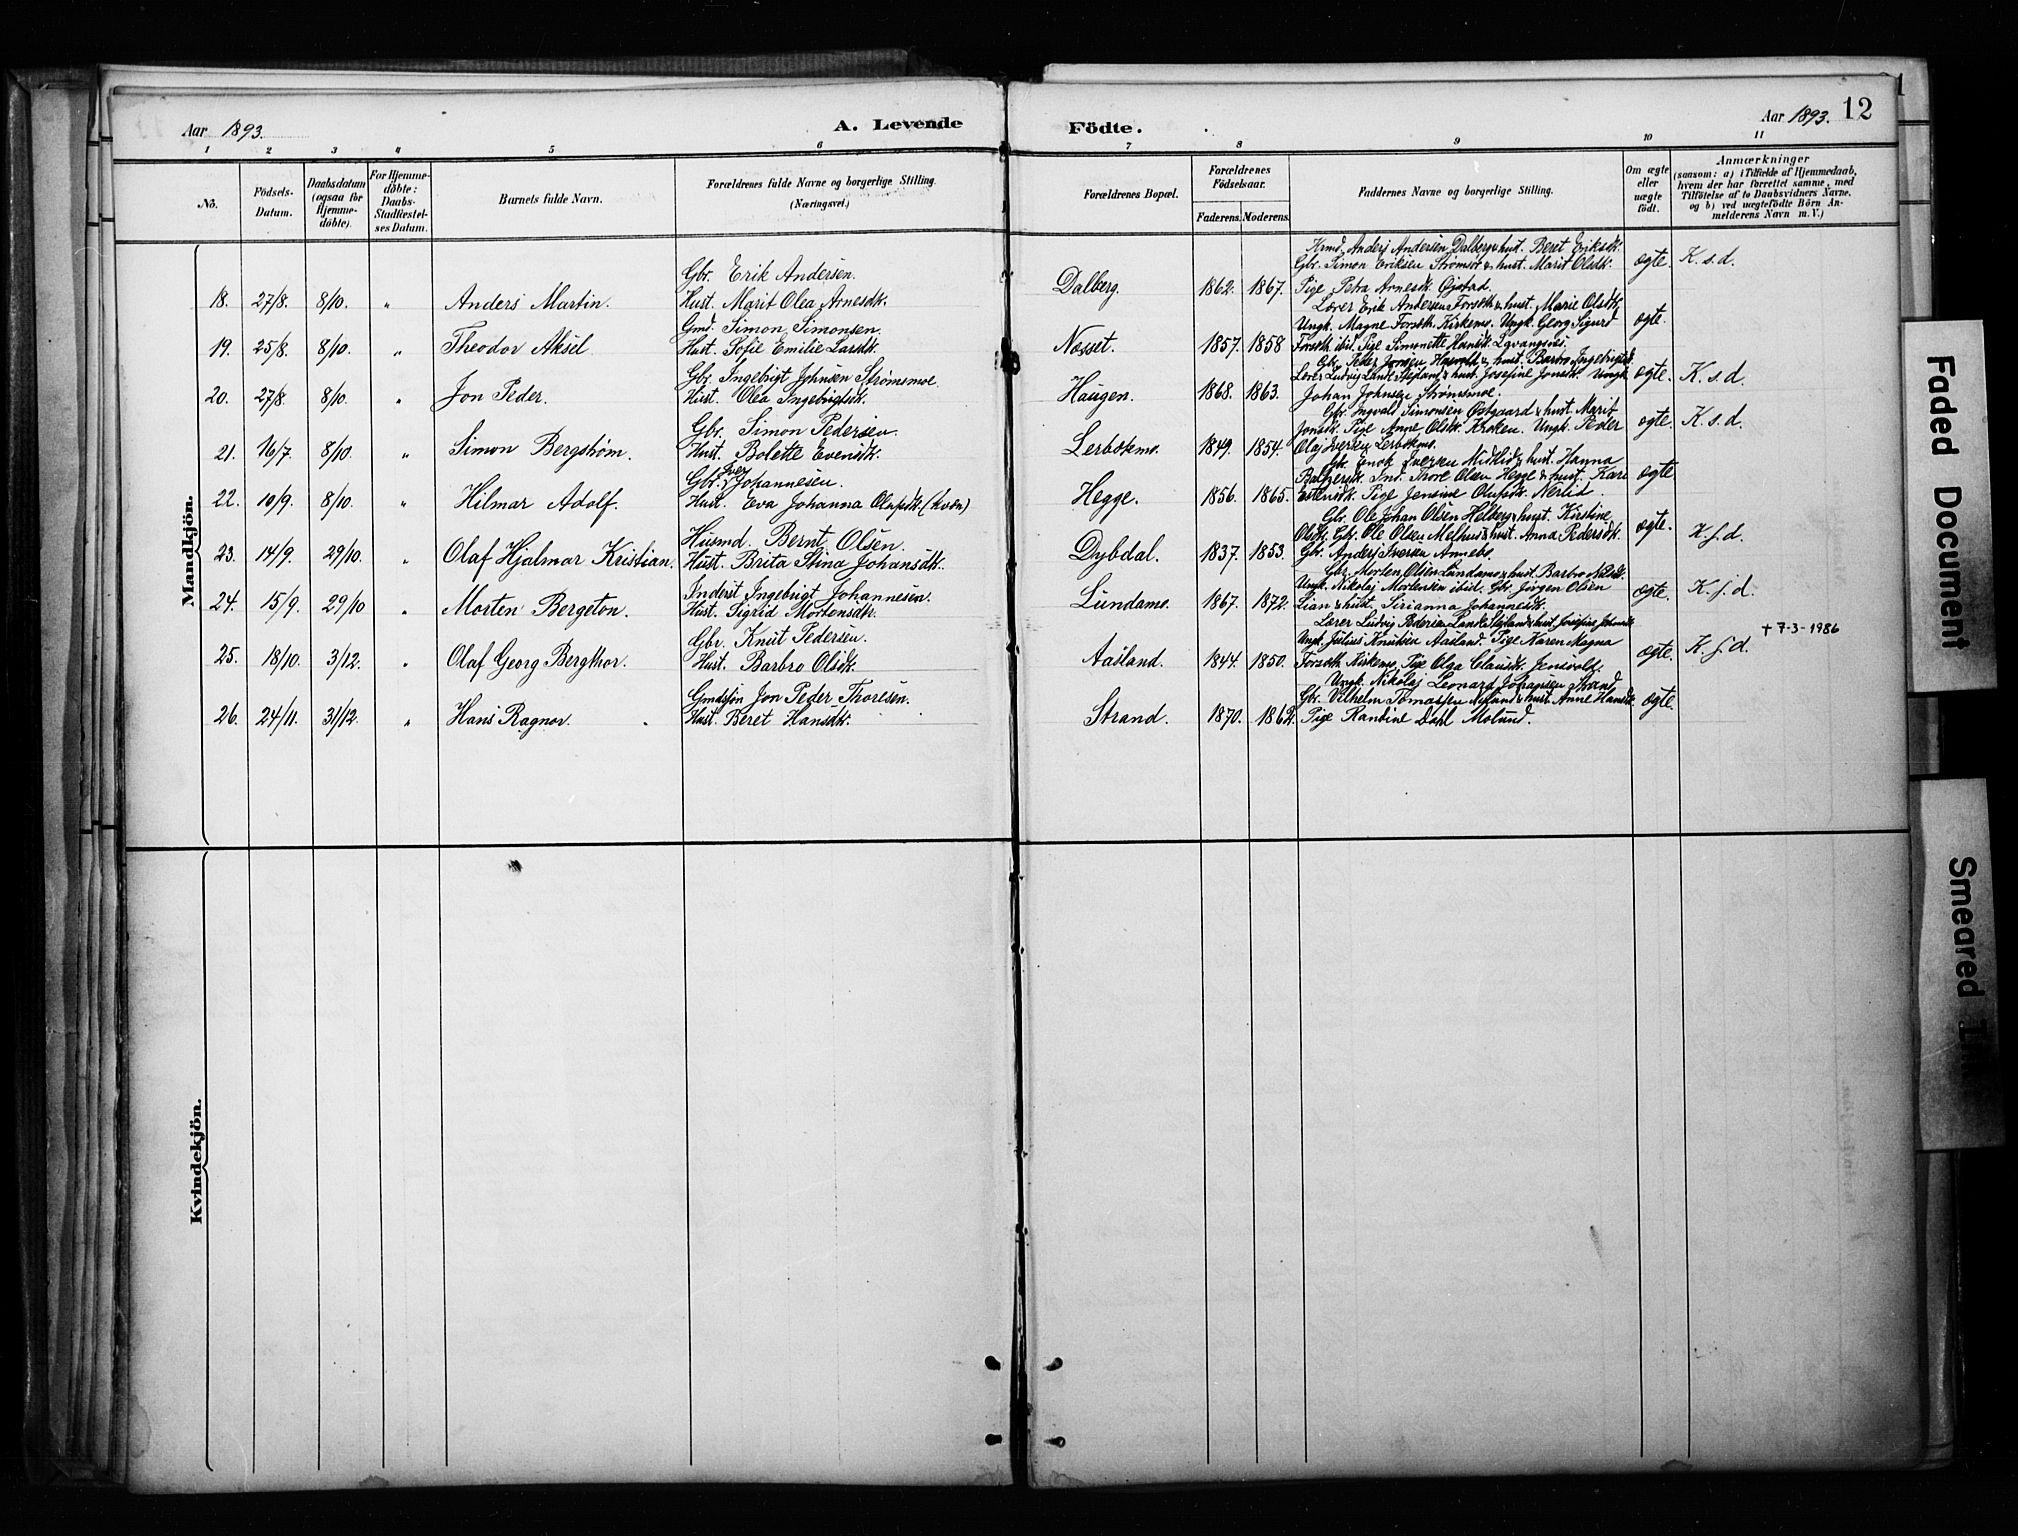 Aar 1893.
A. Levende
Födte.
Aar 1893. 12
1 2 3 4 5 6 7 8 9 10 11
No.
Födsels-Datum.
Daabsdatum (ogsaa for Hjemme-döbte).
For Hjemme-döbte: Daabs-Stadfæstel-ses Datum.
Barnets fulde Navn.
Forældrenes fulde Navne og borgerlige Stilling. (Næringsvei.)
Forældrenes Bopæl.
Forældrenes Födselsaar.
Faderens. Moderens.
Faddernes Navne og borgerlige Stilling.
Om ægte eller uægte födt.
Anmærkninger
(saasom: a) i Tilfælde af Hjemmedaab, hvem der har forrettet samme, med Tilföielse af to Daabsvidners Navne, og b) ved uægtefödte Börn An-melderens Navn m. V.)
Mandkjön.
18. 27/8. 8/10. " Anders Martin. Gbr. Erik Andersen. Hust. Marit Olea Arnesdt. Dalberg. 1862. 1867. Krmd. Anders Andersen Dalberg & hust. Beret Eriksdt. Gbr. Simon Eriksen Strømsør & hust. Marit Olsdt. Pige Petra Arnesdt. Øgstad. ægte. K. s. d.
19. 25/8. 8/10. " Theodor Aksel Gmd. Simon Simonsen. Hust. Sofie Emilie Larsdt. Næsset. 1857. 1858 Lærer Erik Andersen Forseth & hust. Marie Olsdt. Ungk. Magne Forseth Kirkemo. Ungk. Georg Sigurd Forseth ibid. Pige Simonette Hansdt. Lavangsnes. ægte.
20. 27/8. 8/10. " Jon Peder. Gbr. Ingebrigt Johnsen Strømsmoe. Hust. Olea Ingebrigtsdt. Haugen. 1868. 1863. Gbr. Peder Jonsen & hust. Barbro Ingebrigtsdt. Lærer Ludvig Lande & hust. Josefine Jonsdt. Ungk. Johan Johnsen Strømsmoe. ægte. K. s. d.
21. 16/7. 8/10. " Simon Bergstrøm. Gbr. Simon Pedersen. Hust. Bolette Evensdt. Lerbøkmo. 1849. 1854. Gbr. Ingvald Simonsen Østgaard & hust. Marit Jonsdt. Pige Anne Olsdt. Kroken. Ungk. Peder Olaj Iversen Lerbøkmo. ægte. K. s. d.
22. 10/9. 8/10. " Hilmar Adolf. Gbr. Iver Johannesen. Hust. Eva Johanna Olufsdt. (kvæn) Hegge. 1856. 1865. Gbr. Enok Iversen Midtlid & hust. Hanna Baltzersdt. Ind. Thore Olsen Hegge & hust. Kari Estensdt. Pige Jensine Olufsdt. Nerlid. ægte
23. 14/9. 29/10. " Olaf Hjalmar Kristian. Husmd. Bernt Olsen. Hust. Brita Stina Johansdt. Dybdal. 1837. 1853. Gbr. Ole Johan Olsen Helberg & hust. Kirstine Olsdt. Gbr. Ole Olsen Melhus & hust. Anna Pedersdt. Gbr. Anders Iversen Annebo. ægte. K. f. d.
24. 15/9. 29/10 " Morten Bergeton. Inderst Ingebrigt Johannesen. Hust. Sigrid Mortensdt. Lundamo. 1867. 1872. Gbr. Morten Olsen Lundamo & hust. Barbro Nilsdt. Ungk. Nikolaj Mortensen ibid. Gbr. Jørgen Olsen Lian & hust. Sirianna Johannesdt. ægte. K. f. d.
25. 18/10. 3/12. " Olaf Georg Bergthor. Gbr. Knut Pedersen. Hust. Barbro Olsdt. Aasland. 1844. 1850. Lærer Ludvig Pedersen Lande & hust. Josefine Johnsdt. Ungk. Julius Knutsen Aasland. Pige Karen Magna Forseth Kirkemo. Pige Olga Clausdt. Jensvold. ægte. K. f. d. † 7-3-1986
26. 24/11. 31/12. " Hans Ragnor. Gmdssøn Jon Peder Thoresen. Hust. Beret Hansdt. Strand. 1870. 1862. Ungk. Nikolaj Leonard Johansen Strand. Gbr. Vilhelm Tomassen Nyland & hust. Anne Hansdt. Pige Ranbine Dahl Molund. ægte.
Kvindekjön.
Faded Document
Smeared